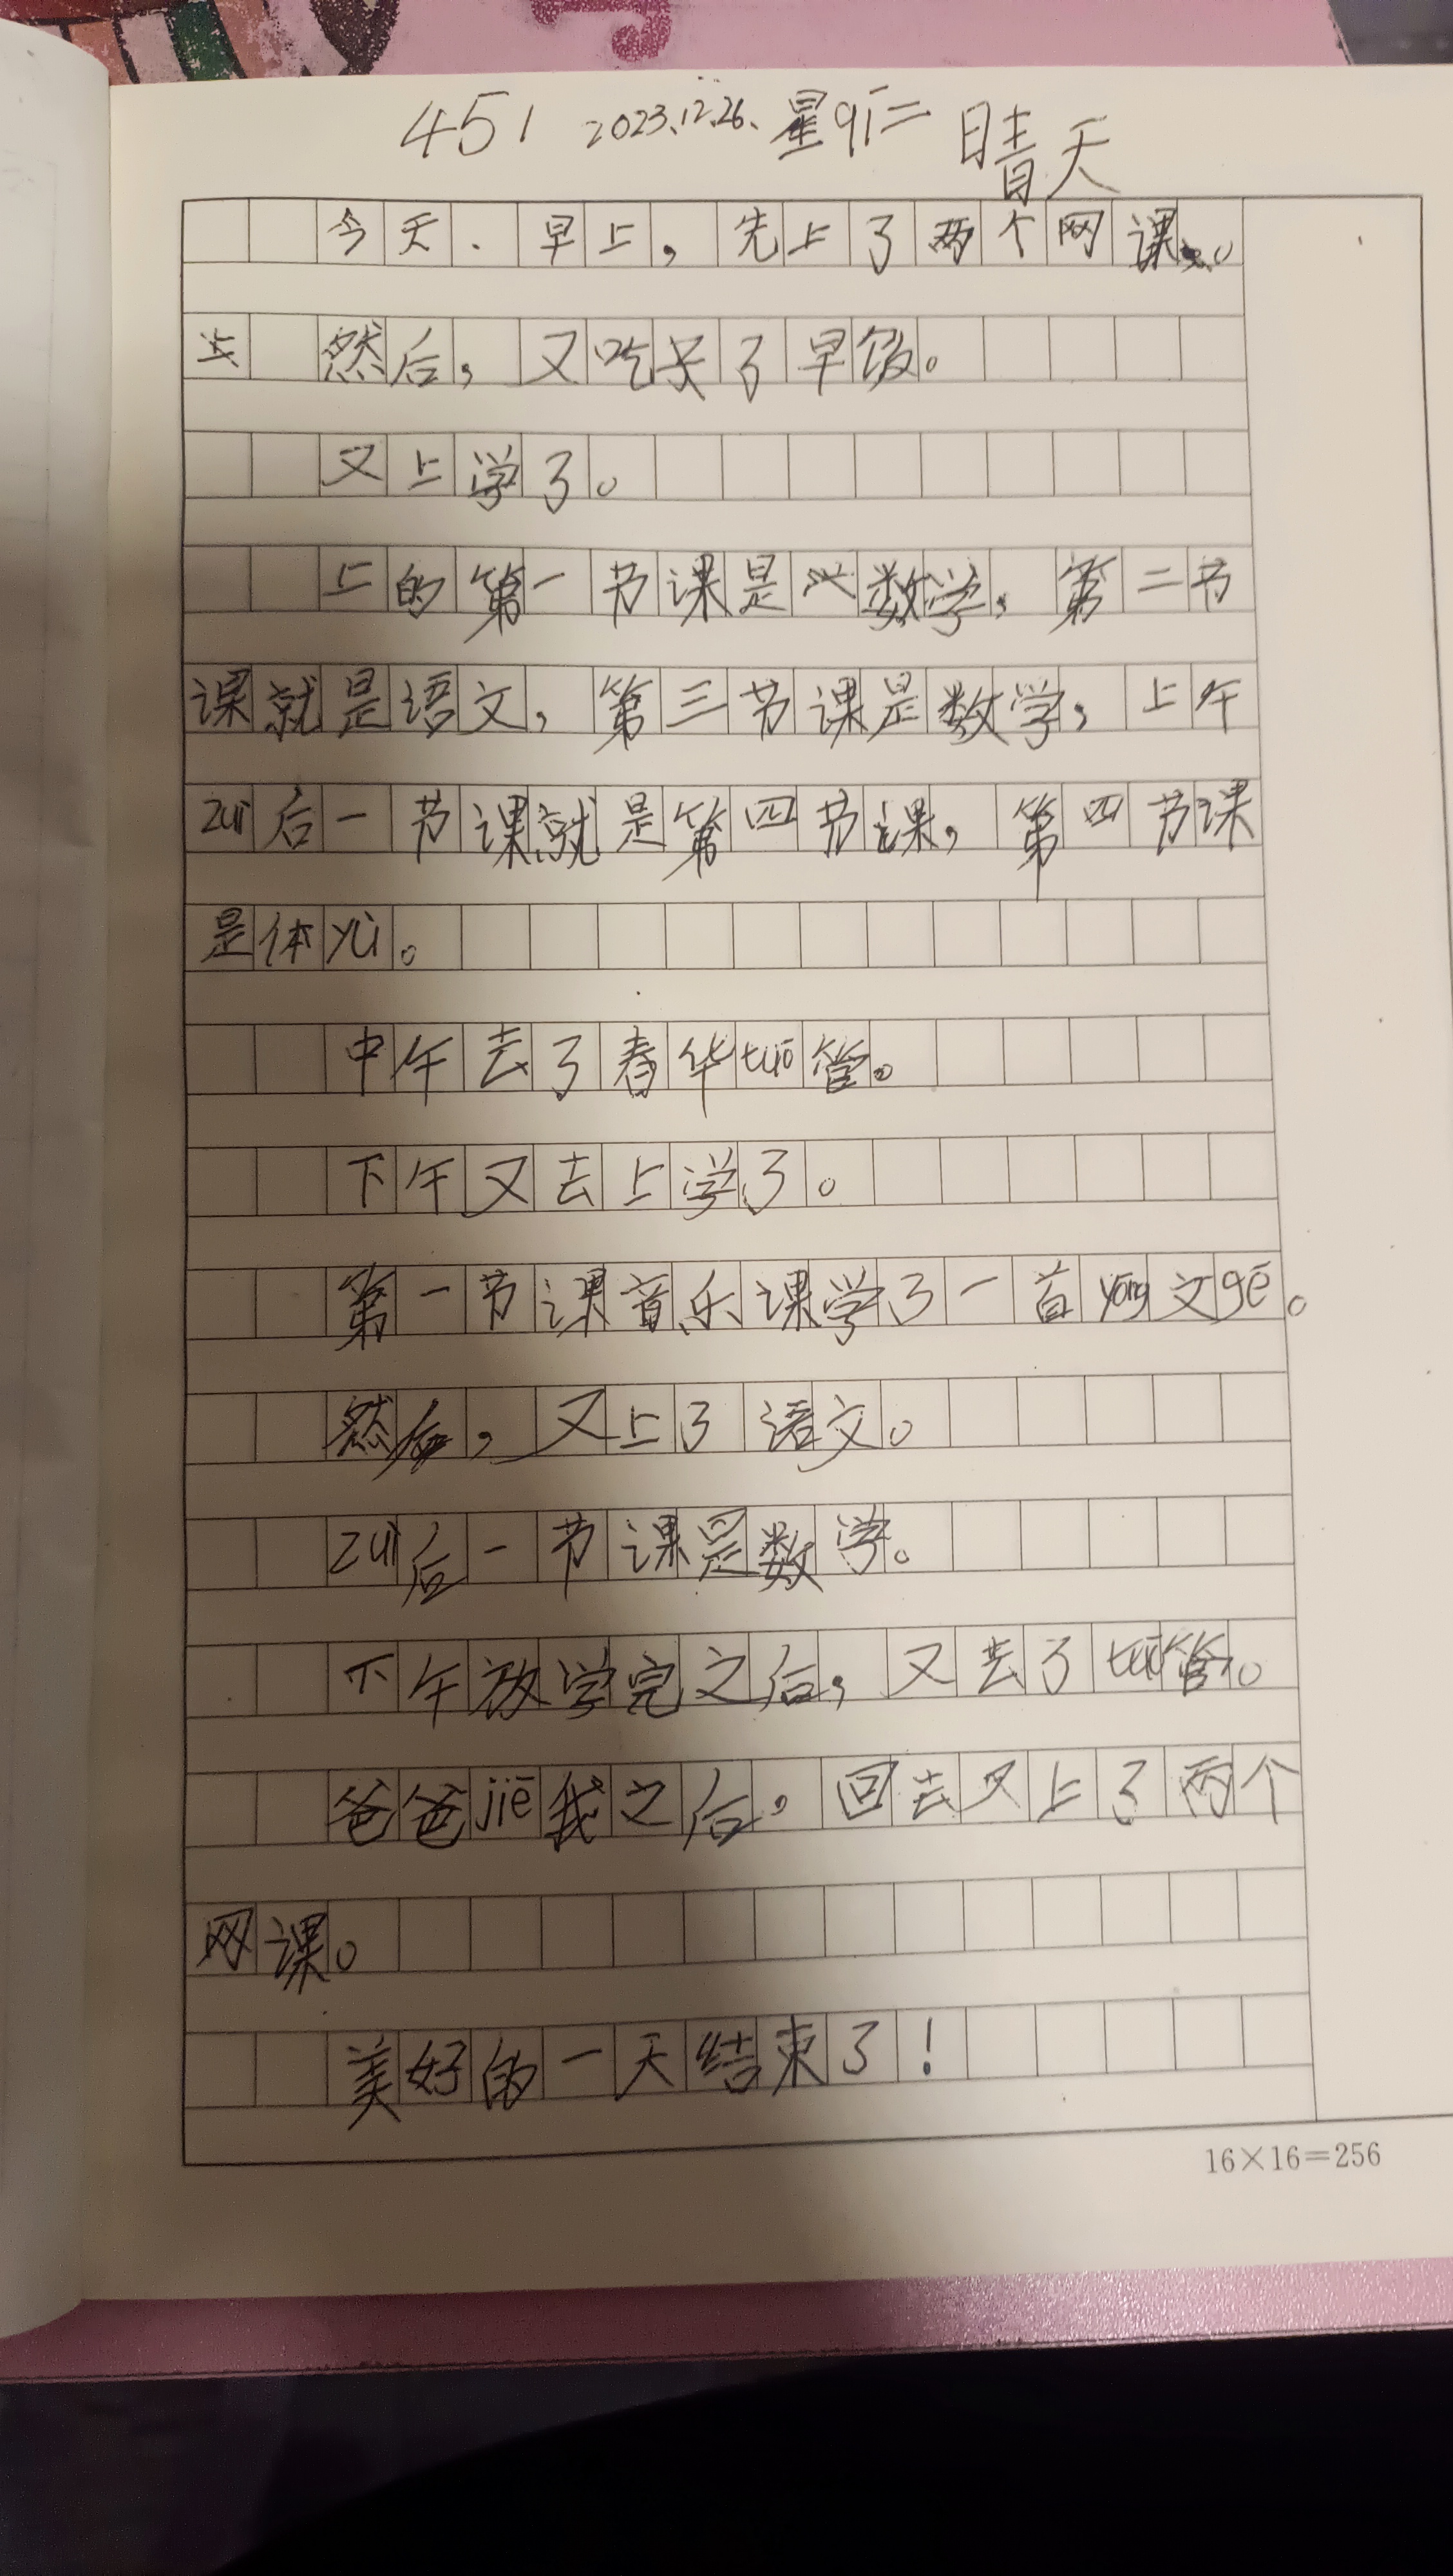 451 2023.12.26. 星qī二 晴天
今天.早上,先上了两个网课。
然后,又吃关了早饭。
又上学了。
上的第一节课是数学,第二节
课就是语文,第三节课是数学,上午
zuì后一节课就是第四节课,第四节课
是体yù。
中午去了春华tuō管。
下午又去上学了。
第一节课音乐课学了一首yīng文gē。
然后,又上了语文。
zuì后一节课是数学。
下午放学完之后,又去了tuō管。
爸爸jiē我之后,回去又上了两个
网课。
美好的一天结束了!
16×16=256